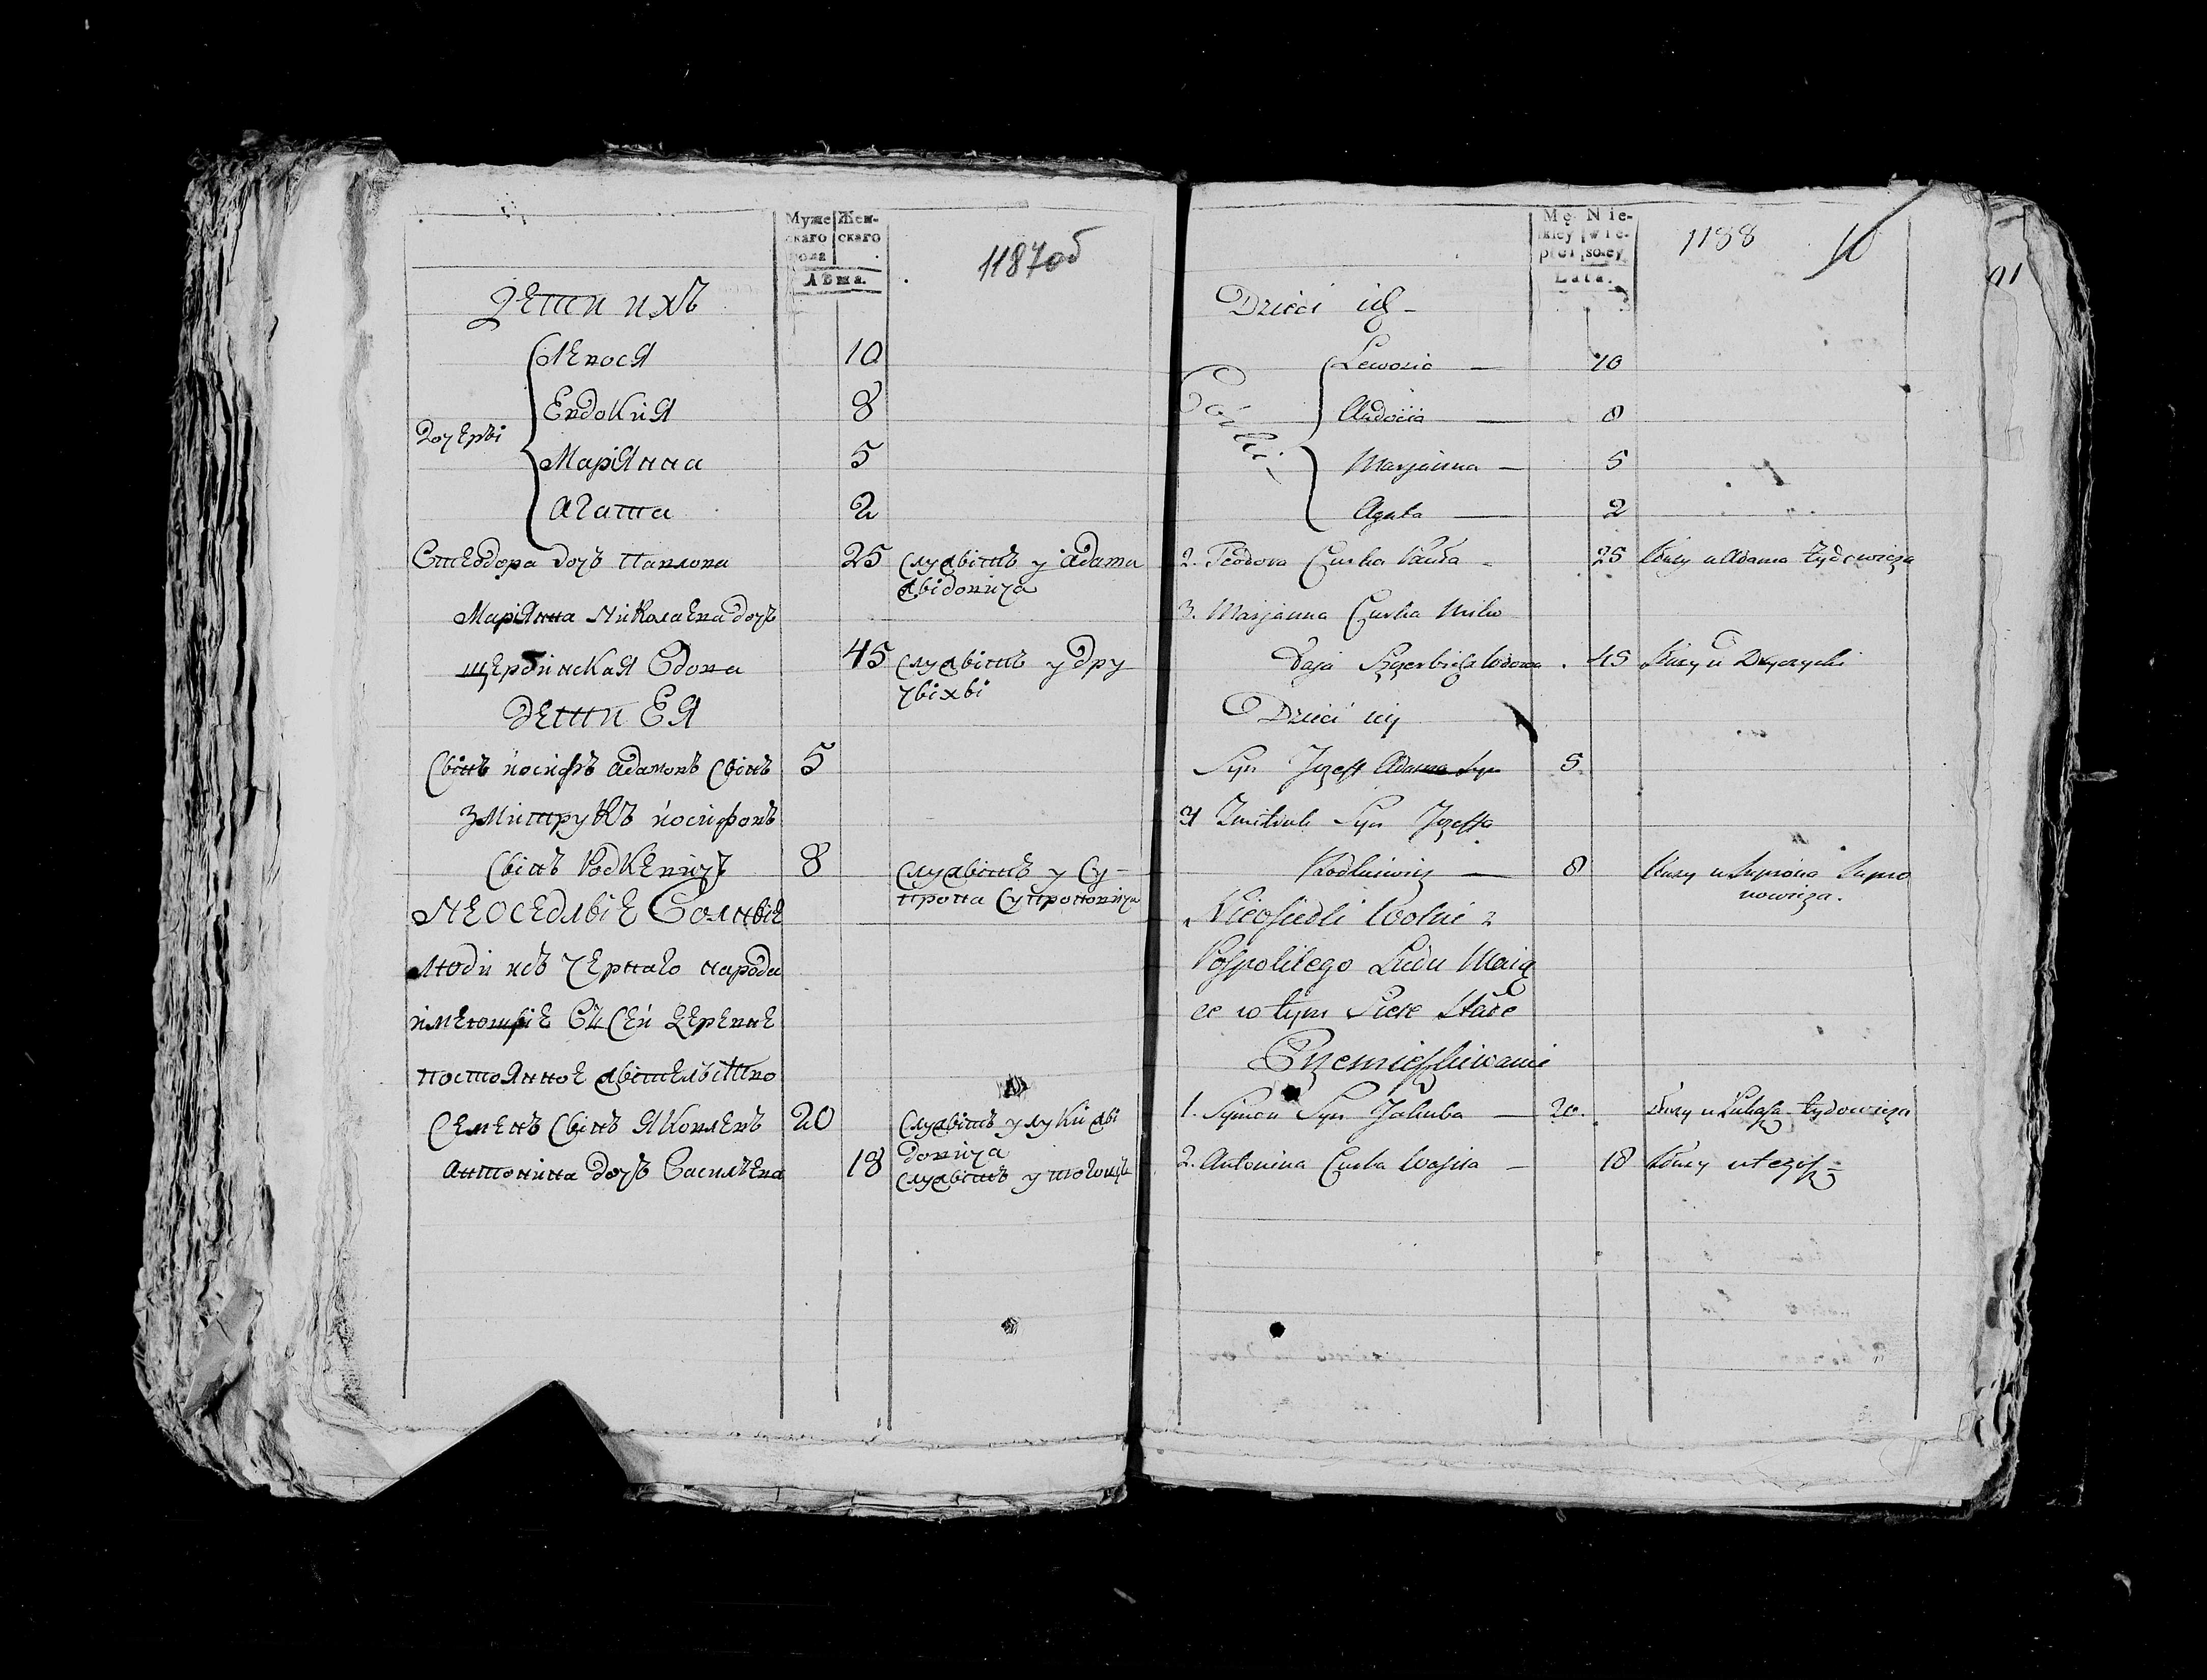 Муже Жен-
скаго скаго
пола
Лѣта.
1187об
Дети ихъ
Левося 10
Евдокия 8
дочери
Маріянна 5
Агата 2
Ѳтеодора дочъ Павлова 25 служитъ у адама
жидовича
Маріянна Николаева дочъ
щербинская вдова 45 служитъ у дру
чихи
дети ея
Сынъ иосифъ адамовъ сынъ 5
змитрукъ иосифовъ
сынъ Родкевичъ 8 служитъ у Су-
прона Супроновича
Неоседлые Волные
люди изъ чернаго народа
имеющие въ сей деревне
постоянное жителство
Семенъ сынъ Яковлевъ 20 служитъ у луки жи
довича
антонина дочъ Васильева 18 служитъ у тогожъ
Mę Nie-
skiey wie-
płci sciey
Lata.
1188 10
Dzieci ich -
Lewosia — 10
Córki
Audocia — 8
Marjanna — 5
Agata — 2
2. Teodora Curka Pauła - 25 służy u Adama Żydowicza
3. Marjanna Curka Miko
łaja Szczerbicza wdowa . 45 służy u Druczychi
Dzieci iey
Syn Jozeff Adama Syn 5
4 Zmitruk Syn Jozeffa
Rodkiewicz — 8 służy u Suprona Supro
nowicza.
Nieosiedli Wolni z
Pospolitego Ludu Maią
ce w tym Siele Stałe
Przemieszkiwanie
1. Symon Syn Jakuba — 20. służy u Łukasza Żydowicza
2. Antonina Curka Wasila — 18 służy u tegoż
01